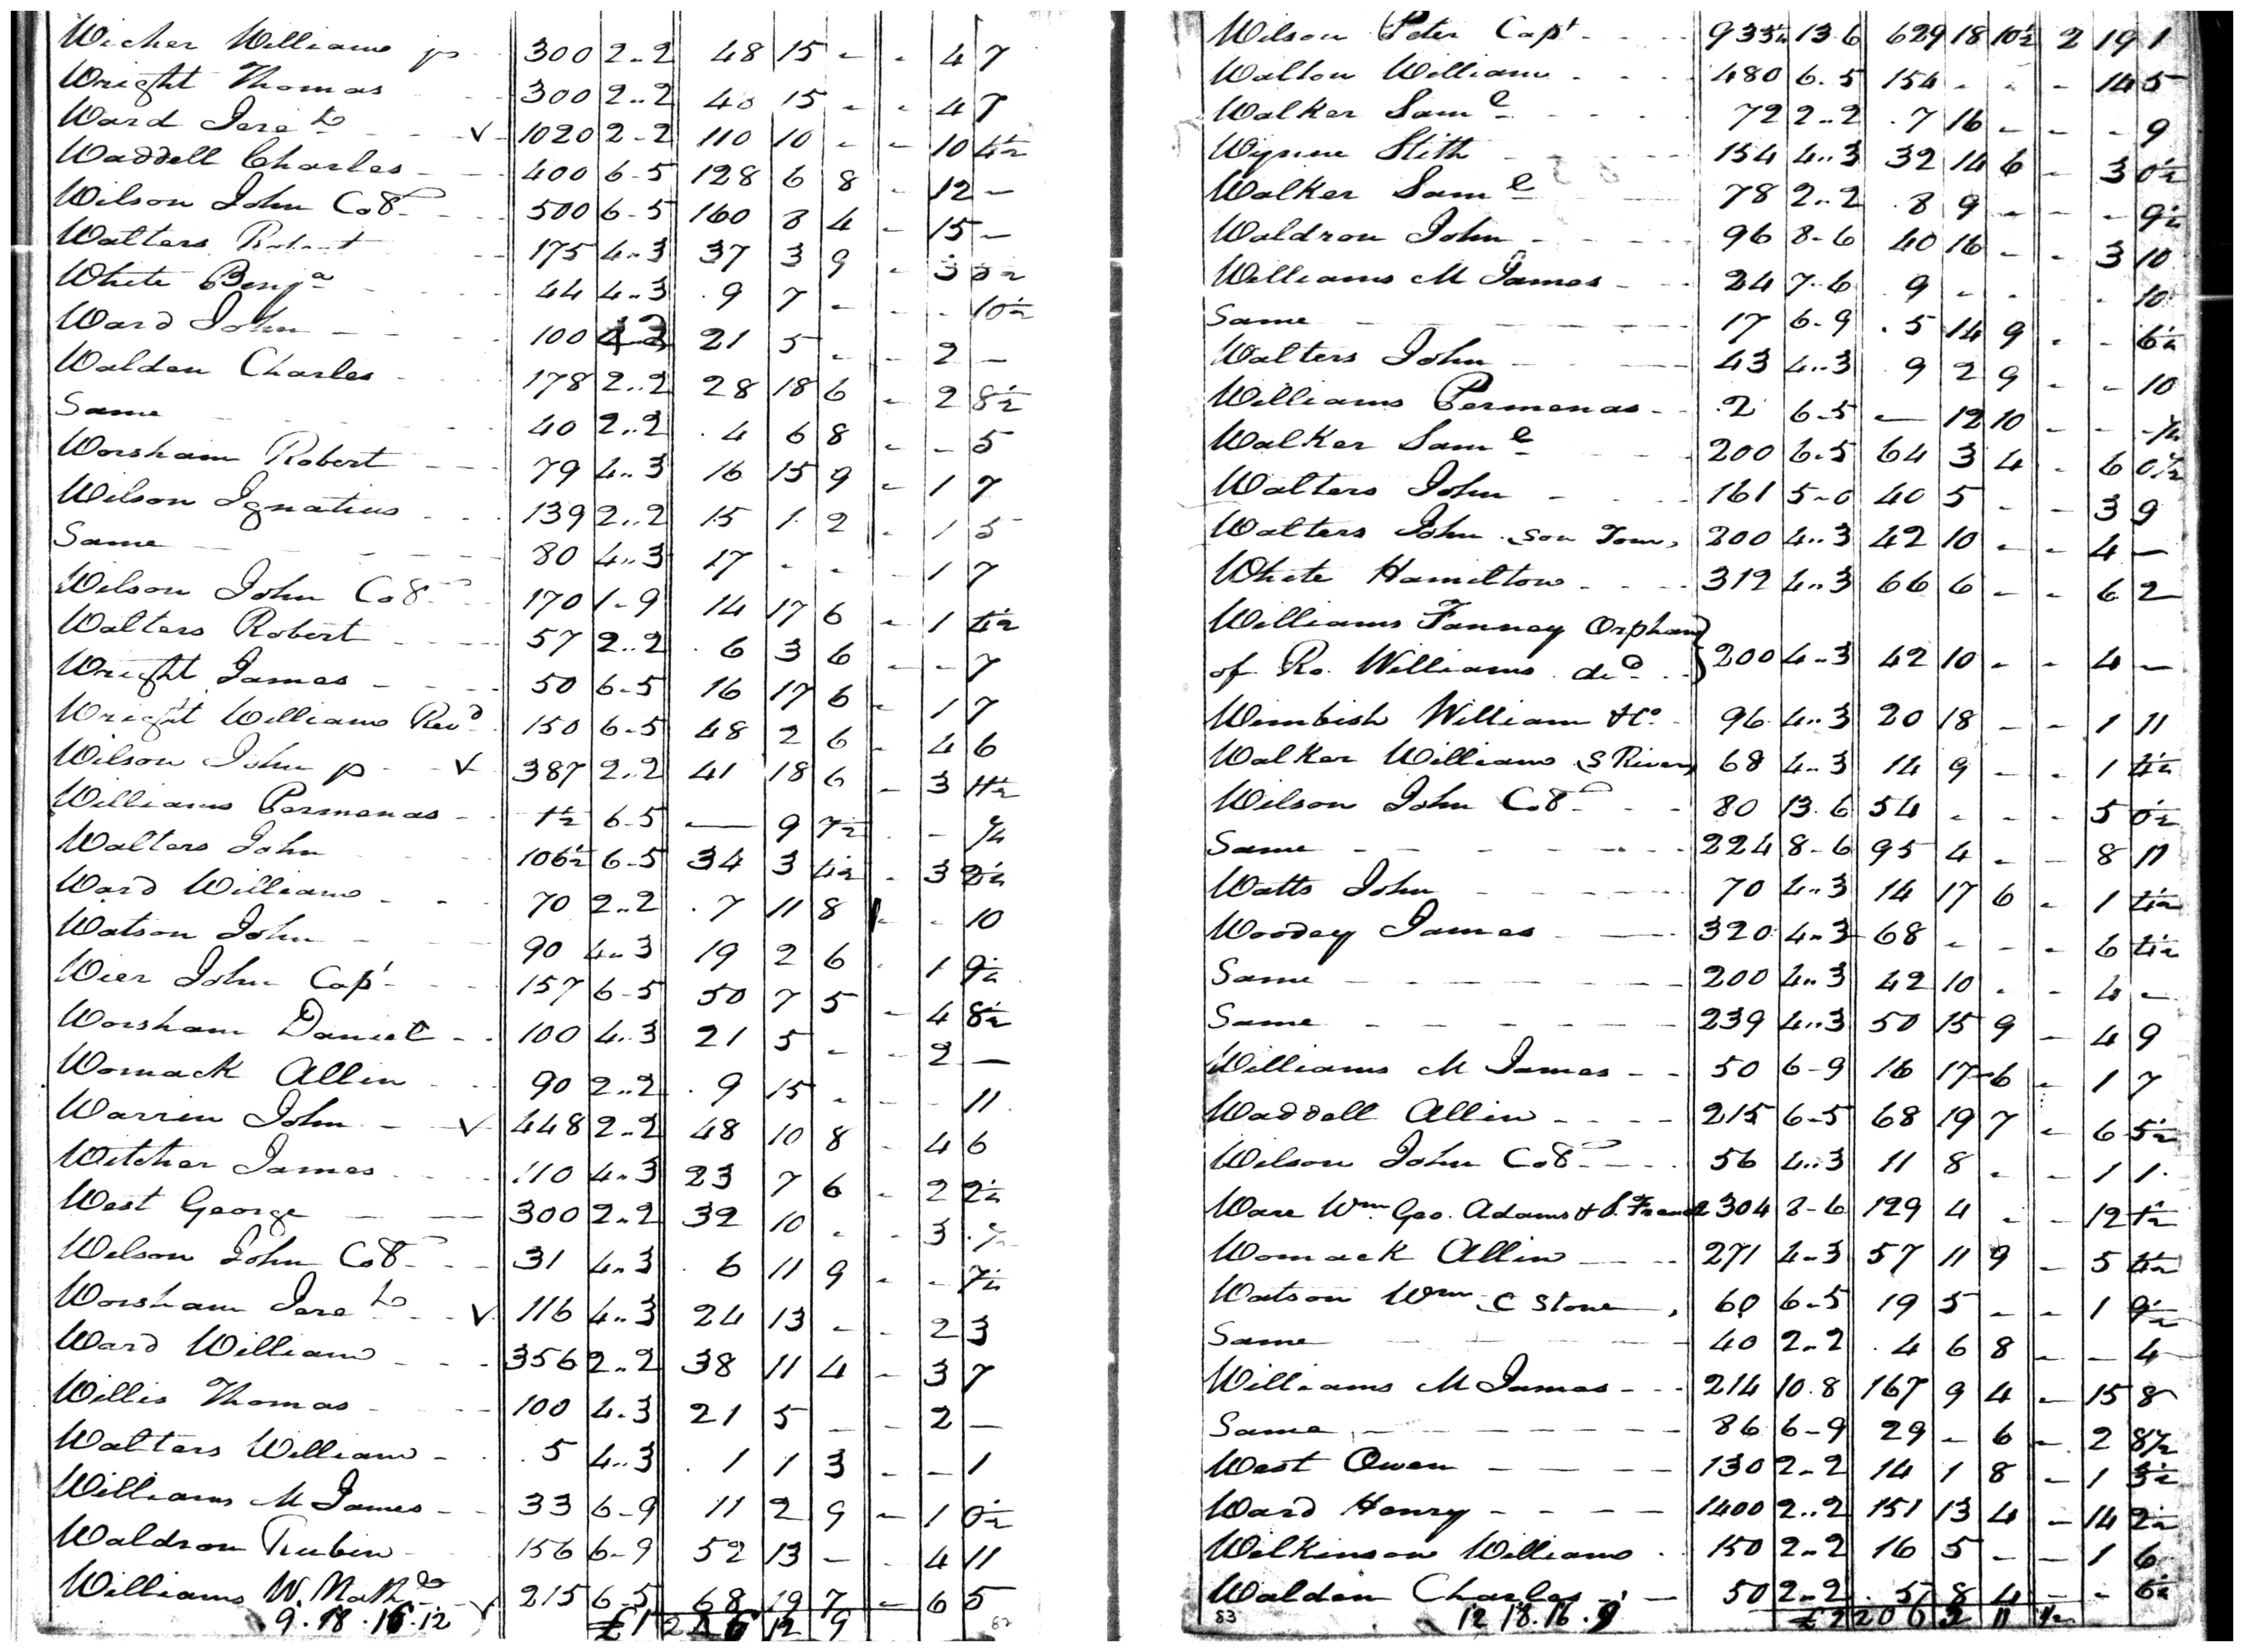 Wicher William jr 300 2..2 48 15 - - 4 7
Wright Thomas 300 2..2 48 15 - - 4 7
Ward Jereh ✓ 1020 2-2 110 10 - - 10 4½
Waddell Charles 400 6-5 128 6 8 - 12 -
Wilson John Colo 500 6-5 160 8 4 - 15 -
Walters Robert 175 4..3 37 3 9 - 3
White Benja 44 4..3 9 7 - - - 10½
Ward John 100 21 5 - - 2 -
Walden Charles 178 2..2 28 18 6 - 2 8½
Same 40 2..2 4 6 8 - - 5
Worsham Robert 79 4..3 16 15 9 - 1 7
Wilson Ignatius 139 2..2 15 1 2 - 1 5
Same 80 4..3 17 - - - 1 7
Wilson John Colo 170 1-9 14 17 6 - 1 4½
Walters Robert 57 2..2 6 3 6 - - 7
Wright James 50 6-5 16 17 6 - 1 7
Wright William Revd 150 6-5 48 2 6 - 4 6
Wilson John p ✓ 387 2..2 41 18 6 - 3 11½
Williams Permenas 1½ 6-5 — 9 7½ - - ¼
Walters John 106½ 6-5 34 3 4½ - 3 2½
Ward William 70 2..2 7 11 8 - - 10
Watson John 90 4..3 19 2 6 - 1 9½
Wier John Capt 157 6-5 50 7 5 - 4 8½
Worsham Daniel 100 4..3 21 5 - - 2 —
Womack Allin 90 2..2 9 15 - - - 11
Warren John ✓ 448 2..2 48 10 8 - 4 6
Witcher James 110 4..3 23 7 6 - 2 2½
West George 300 2..2 32 10 - - 3
Wilson John Colo 31 4..3 6 11 9 - - 7½
Worsham Jereh ✓ 116 4..3 24 13 - - 2 3
Ward William 356 2..2 38 11 4 - 3 7
Willis Thomas 100 4..3 21 5 - - 2 —
Walters William 5 4..3 1 1 3 - - 1
Williams M James 33 6-9 11 2 9 - 1 0½
Waldron Reubin 156 6-9 52 13 - - 4 11
Williams W. Nathl ✓ 215 6-5 68 19 7 - 6 5
9.18.16.12 12 9 82
Wilson Peter Capt 933½ 13.6 629 18 10½ 2 19 1
Walton William 480 6.5 154 - - - 14 5
Walker Saml 72 2..2 7 16 - - - 9
Wynne Stith 154 4..3 32 14 6 - 3 0½
Walker Saml 78 2..2 8 9 - - - 9½
Waldron John 96 8-6 40 16 - - 3 10
Williams M James 24 7-6 9 - - - - 10
Same 17 6-9 5 14 9 - - 6½
Walters John 43 4..3 9 2 9 - - 10
Williams Permenas 2 6-5 — 12 10 - - ½
Walker Saml 200 6-5 64 3 4 - 6 0½
Walters John 161 5-0 40 5 - - 3 9
Walters John Son Tom, 200 4..3 42 10 - - 4 —
White Hamilton 312 4..3 66 6 - - 6 2
Williams Fanney Orphan
of Ro. Williams decd 200 4..3 42 10 - - 4 —
Wimbish William & Co 96 4..3 20 18 - - 1 11
Walker William S River 68 4..3 14 9 - - 1 4½
Wilson John Colo 80 13.6 54 - - - 5 0½
Same 224 8-6 95 4 - - 8 11
Watts John 70 4..3 14 17 6 - 1 4½
Woodey James 320 4..3 68 - - - 6 4½
Same 200 4..3 42 10 - - 4 -
Same 239 4..3 50 15 9 - 4 9
Williams M James 50 6-9 16 17 6 - 1 7
Waddell Allin 215 6-5 68 19 7 - 6 5½
Wilson John Colo 56 4..3 11 8 - - 1 1
Ware Wm Geo. Adams & 304 8-6 129 4 - - 12 1½
Womack Allin 271 4..3 57 11 9 - 5 4½
Watson Wm C Stone, 60 6-5 19 5 - - 1 9½
Same 40 2..2 4 6 8 - - 4
Williams M James 214 10.8 167 9 4 - 15 8
Same 86 6-9 29 - 6 - 2 8½
West Owen 130 2..2 14 1 8 - 1 3½
Ward Henry 1400 2..2 151 13 4 - 14 2½
Wilkinson William 150 2..2 16 5 - - 1 6
Walden Charles 50 2..2 5 8 4 - - 6½
83 12 18.16.9 £2206 2 11 ½